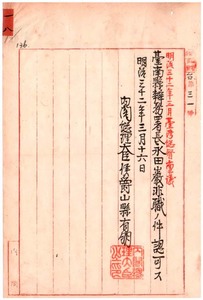 一八
136
台三一
明治三十二年三月臺灣總督稟議
臺南縣辨務署長永田巖非職ノ件認可ス
明治三十二年三月十六日
内閣總理大臣侯爵山縣有朋